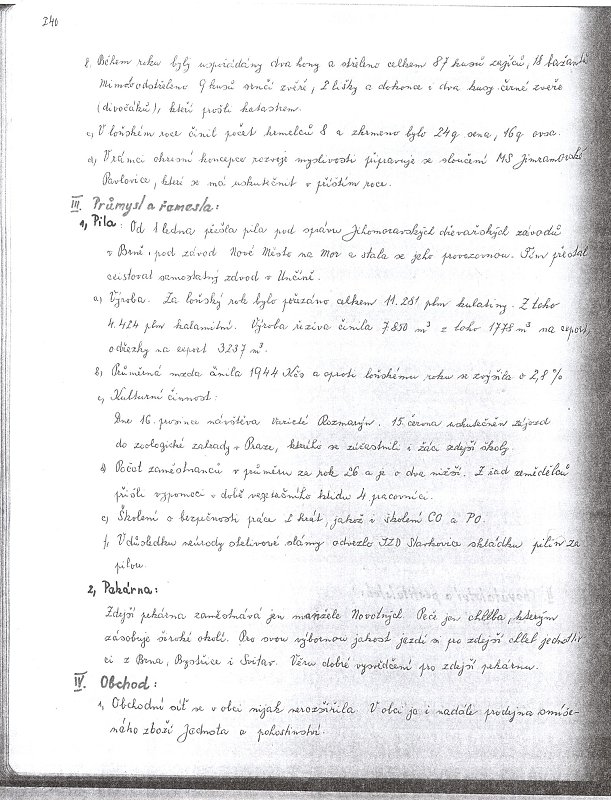 240
b. Během roku byly uspořádány dva hony a střeleno celkem 87 kusů zajíců, 18 bažantů
Mimo odstřeleno 9 kusů srnčí zvěře, 2 lišky a dokonce i dva kusy černé zvěře
(divočáků), kteří prošli katastrem.
c, V loňském roce činil počet krmelců 8 a zkrmeno bylo 24q sena, 16q ovsa.
d, V rámci okresní koncepce rozvoje myslivosti připravuje se sloučení MS Jimramovské
Pavlovice, které se má uskutečnit v příštím roce.
III. Průmysl a řemesla:
1, Pila: Od 1 ledna přešla pila pod správu Jihomoravských dřevařských závodů
v Brně, pod závod Nové Město na Mor a stala se jeho provozovnou. Tím přestal
existovat samostatný závod v Unčíně.
a, Výroba. Za loňský rok bylo pořezáno celkem 11.281 plm kulatiny. Z toho
4.424 plm kalamitní. Výroba řeziva činila 7850 m³ z toho 1778 m³ na export
odřezky na export 3237 m³.
b, Průměrná mzda činila 1944 Kčs a oproti loňskému roku se zvýšila o 2,8 %
c, Kulturní činnost:
Dne 16. prosince návštěva varieté Rozmarýn. 15. června uskutečněn zájezd
do zoologické zahrady v Praze, kterého se zúčastnili i žáci zdejší školy.
d, Počet zaměstnanců v průměru za rok 26 a je o dva nižší. Z řad zemědělců
přišli vypomoci v době vegetačního klidu 4 pracovníci.
e, Školení o bezpečnosti práce 2 krát, jakož i školení CO a PO.
f, V důsledku neúrody stelivové slámy odvezlo JZD skládku pilin za
pilou.
2, Pekárna:
Zdejší pekárna zaměstnává jen manžele Novotných. Peče jen chleba, kterým
zásobuje široké okolí. Pro svou výbornou jakost jezdí si pro zdejší chleb jednotliv
ci z Brna, Bystřice i Svitav. Věru dobré vysvědčení pro zdejší pekárnu.
IV. Obchod:
1, Obchodní síť se v obci nijak nerozšířila. V obci je i nadále prodejna smíše-
ného zboží Jednota a pohostinství.